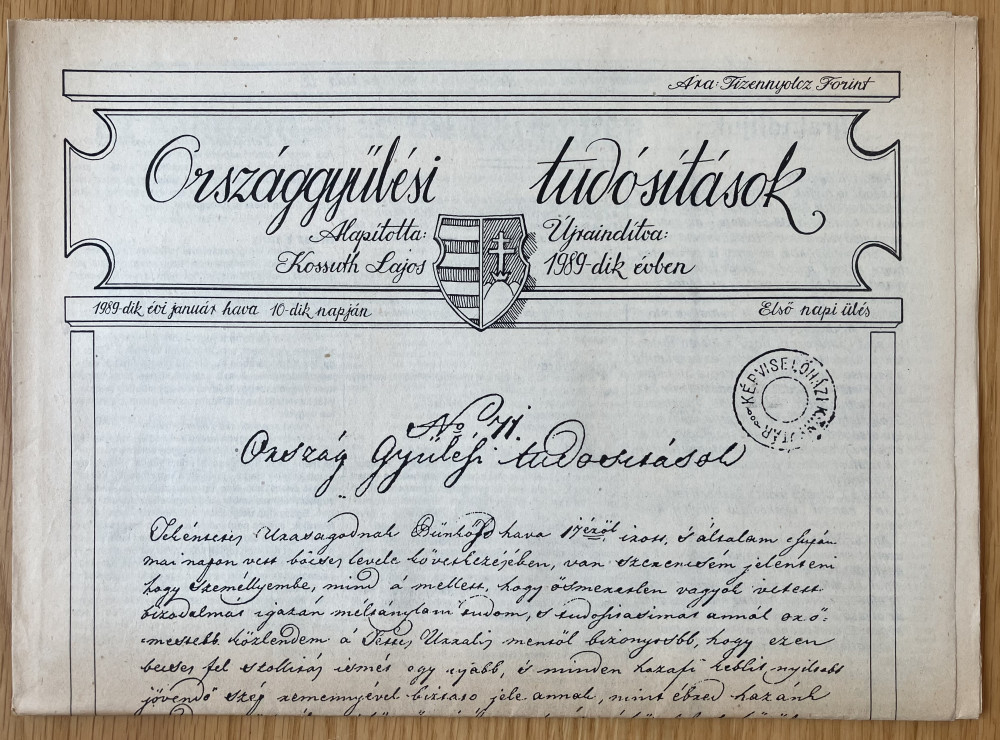 Ára: Tizennyolcz Forint
Országgyűlési tudósítások
Alapította: Újraindítva:
Kossuth Lajos 1989-dik évben
1989-dik évi január hava 10-dik napján Első napi ülés
KÉPVISELŐHÁZI KÖNYVTÁR
No 71.
Ország Gyűlési tudositások
Uraságodnak hava irott, s általam
mai napon vett becses levele következésében, van szerencsém jelenteni
hogy személlyembe, mind a mellett, hogy ösmeretlen vagyok vetett
bizodalmát igazán méltánylani tudom, s tudositásimat annál örö-
mestebb közlendem a Uraknak mentől bizonyosb, hogy ezen
becses fel szollitás ismét egy ujabb, s minden hazafi keblit
jövendő szép reményével biztato jele annak, mint ébred hazánk